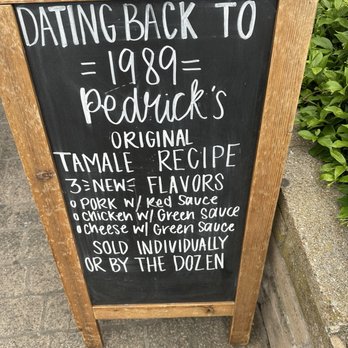 DATING BACK TO
=1989=
Pedrick's
ORIGINAL
TAMALE RECIPE
3 NEW FLAVORS
PORK W/ Red Sauce
CHICKEN W/ Green Sauce
CHEESE W/ Green Sauce
SOLD INDIVIDUALLY
OR BY THE DOZEN